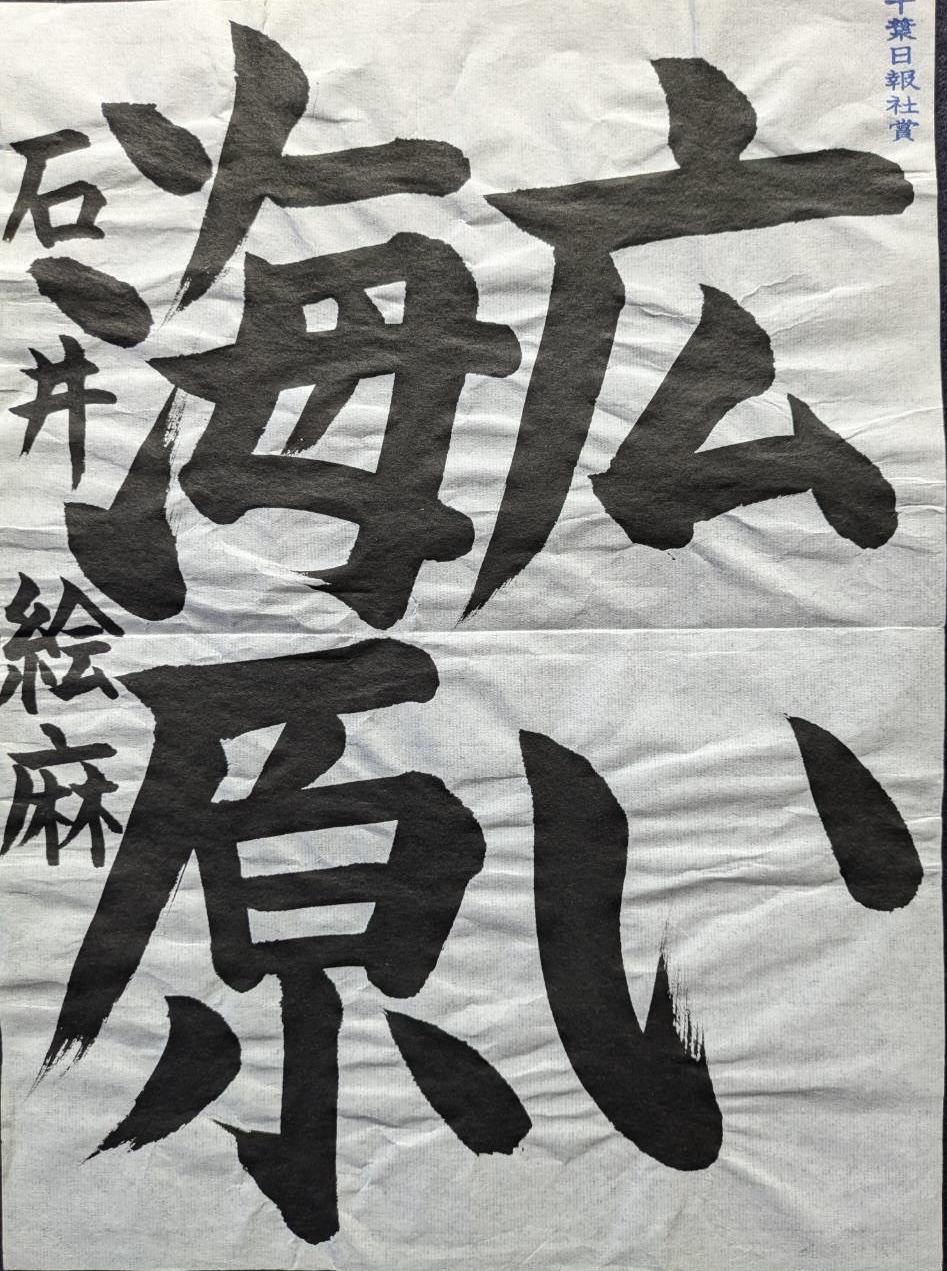 千葉日報社賞
広い
海原
石井絵麻